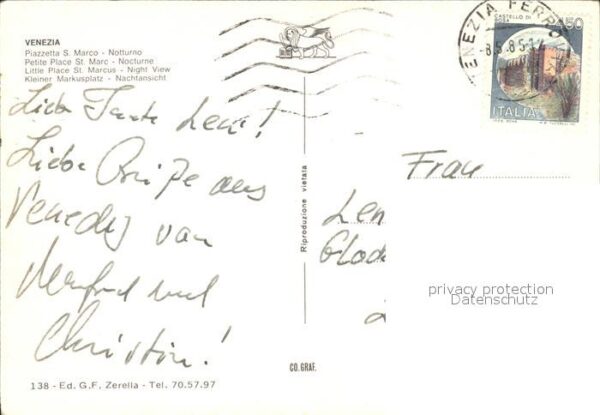 VENEZIA
Piazzetta S. Marco - Notturno
Petite Place St. Marc - Nocturne
Little Place St. Marcus - Night View
Kleiner Markusplatz - Nachtansicht
Liebe Tante Leni!
Liebe Grüße aus
Venedig von
Manfred und
Christin!
138 - Ed. G.F. Zerella - Tel. 70.57.97
Riproduzione vietata
CO. GRAF.
VENEZIA FERROV
8.5.85
CASTELLO DI
450
ITALIA
Frau
Len
privacy protection
Datenschutz